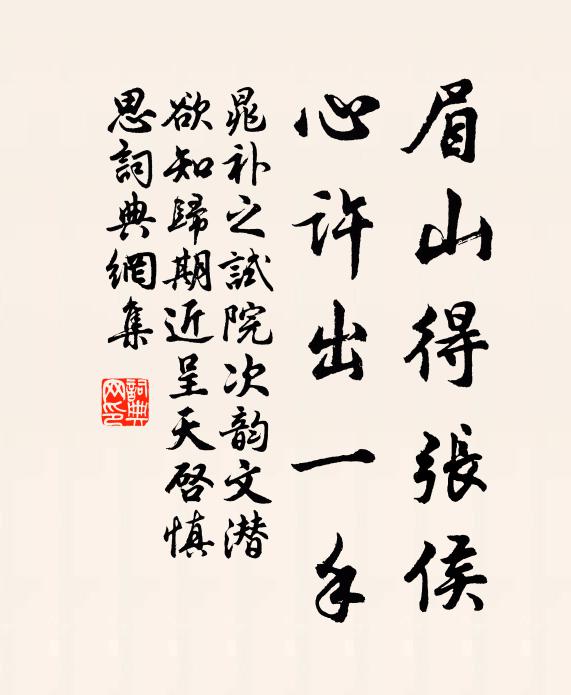 眉山得張侯
心許出一手
晁补之試院次韵文潜
欲知歸期近呈天啓慎
思詞典網集
詞典
网印